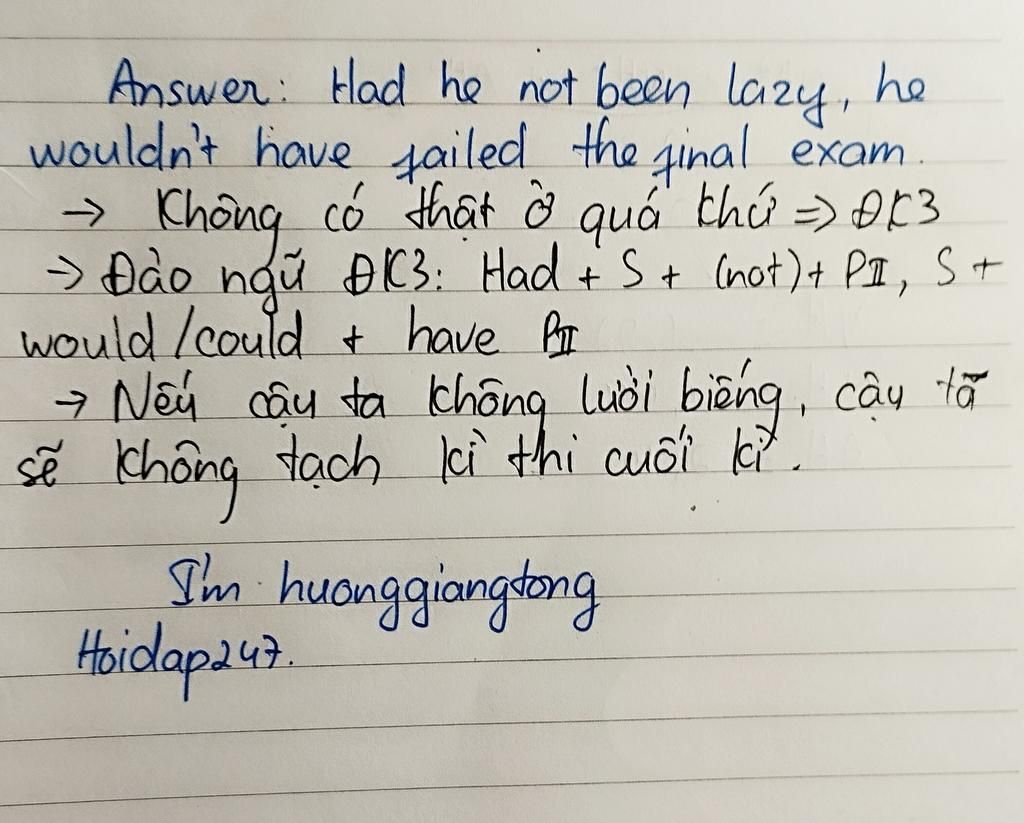 Answer: Had he not been lazy, he
wouldn't have failed the final exam.
→ Không có thật ở quá khứ => ĐK3
→ Đảo ngữ ĐK3: Had + S + (not) + PII, S +
would/could + have PII
→ Nếu cậu ta không lười biếng, cậu ta
sẽ không tạch kì thi cuối kì.
I'm huonggiangtong
Hoidap247.